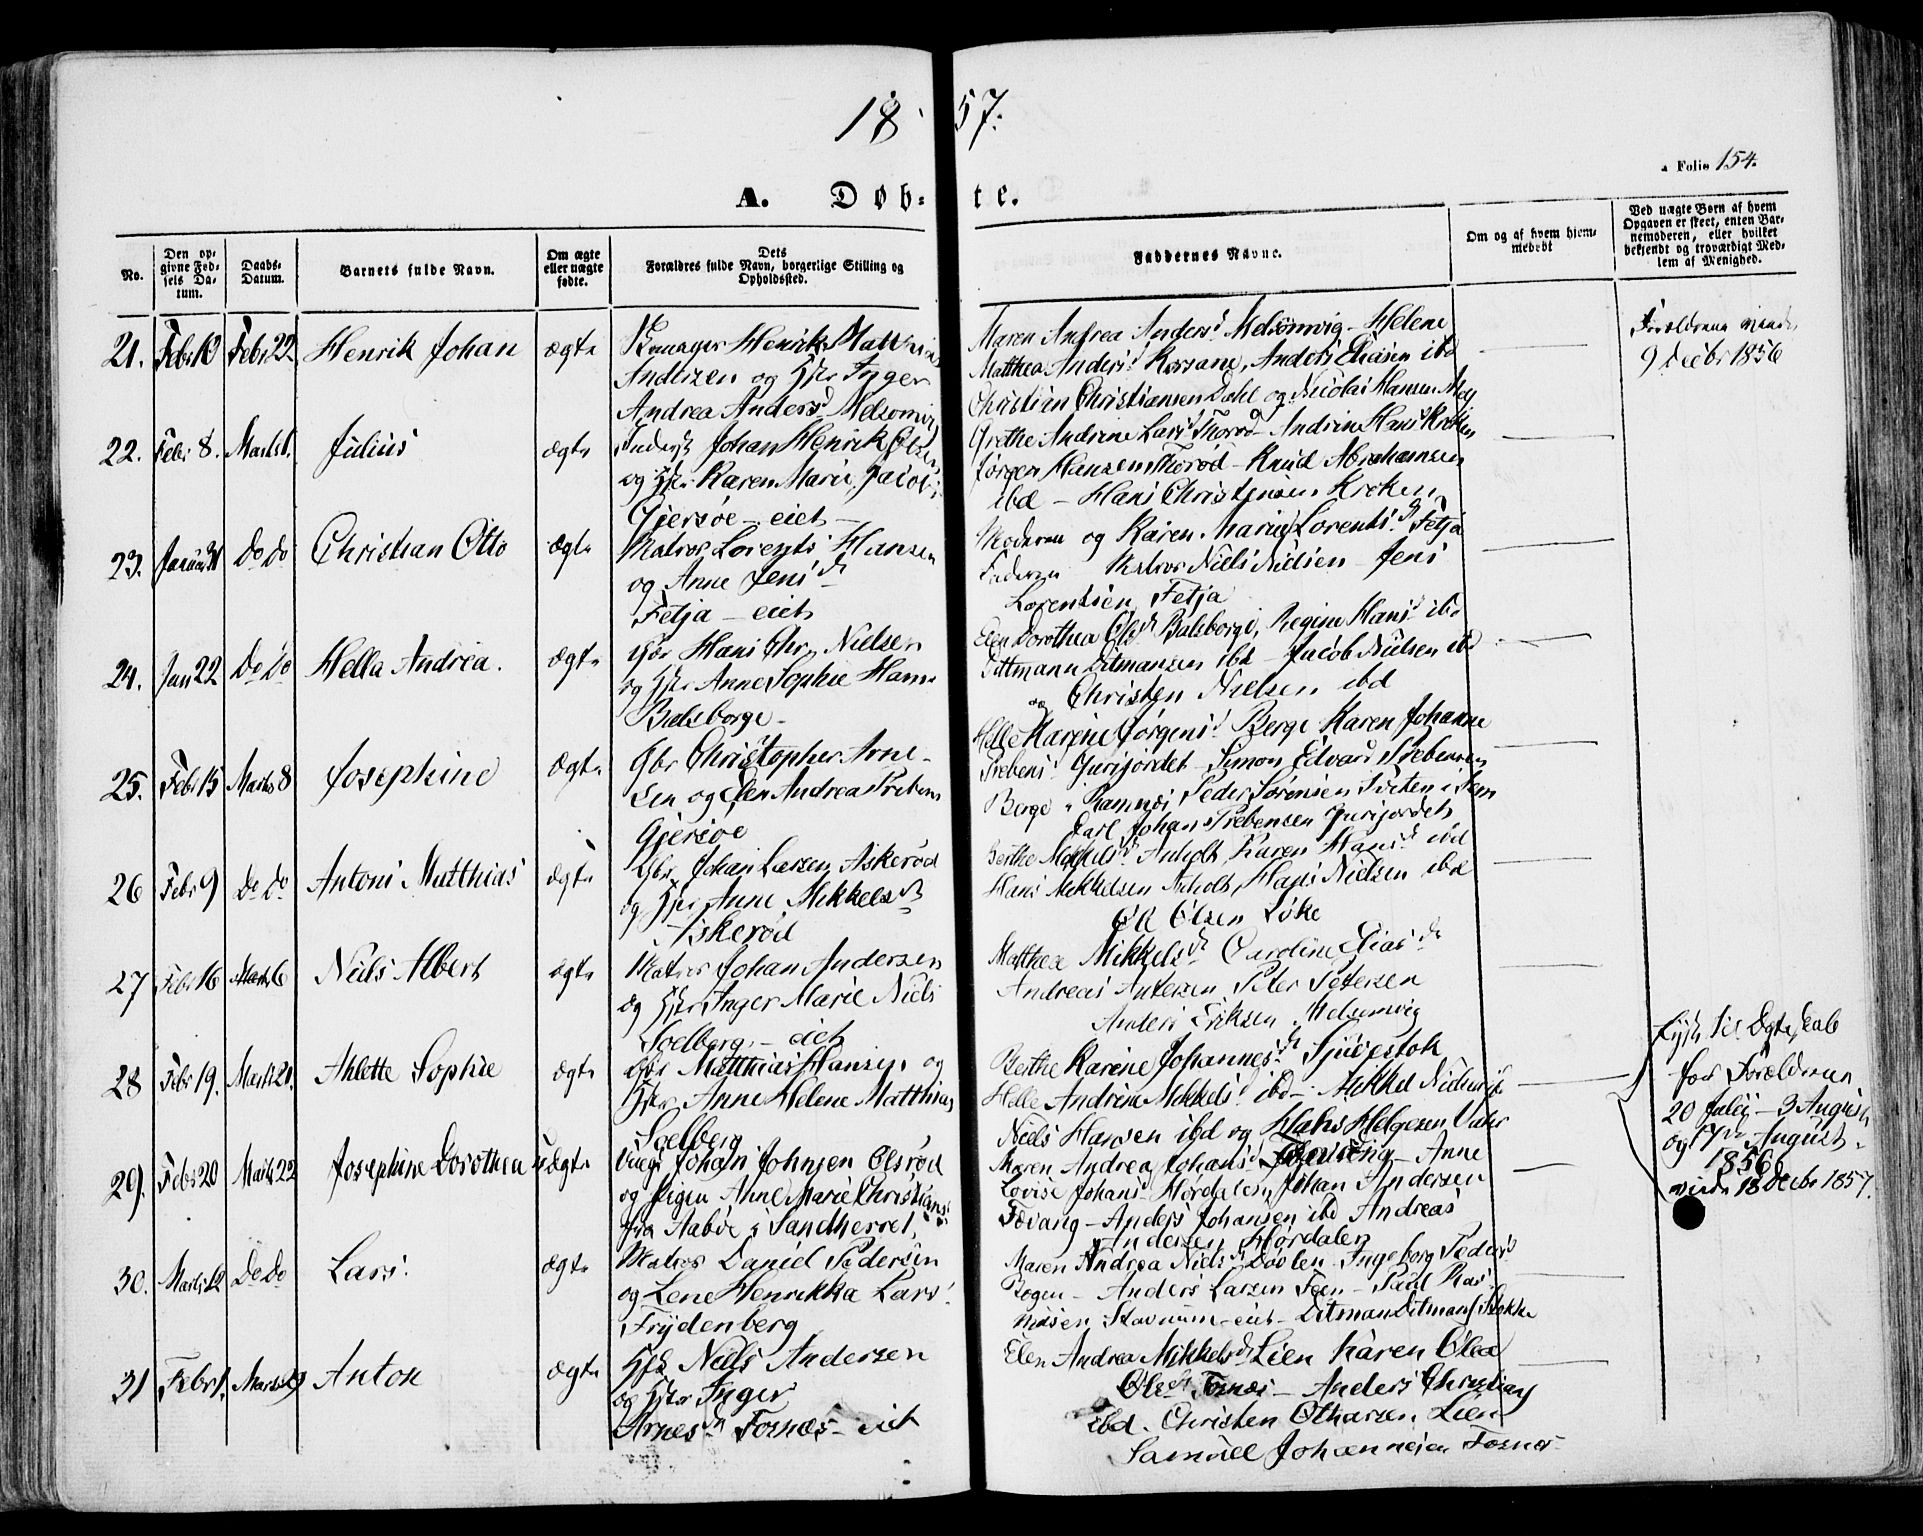 1857.
Folio 154.
A. Døb-te.
No.
Den op-
givne Fød-
sels Da-
tum.
Daabs-
Datum.
Barnets fulde Navn.
Om ægte
eller uægte
fødte.
Dets
Forældres fulde Navn, borgerlige Stilling og
Opholdssted.
Faddernes Navne.
Om og af hvem hjem-
medøbt
Ved uægte Børn af hvem
Opgaven er skeet, enten Bar-
nemoderen, eller hvilket
bekjendt og troværdigt Med-
lem af Menighed.
21. Febr 13 Febr 22 Henrik Johan ægte
Henrik Matthias
Andersen og Hstr Inger
Andrea Andersd Melsomvig
Maren Andrea Andersd Melsomvig - Helene
Matthea Andersd Rossane, Anders Eliasen ibd
Christian Christiansen Dahl og Nicolai Hansen
Forældrene viede
9 decbr 1856
22. Febr 8. Marts 1. Julius ægte
Inderst Johan Henrik Olsen
og Hstr Karen Marie Jacobs
Gjersøe - eiet -
Grethe Andrine Larsd Thorød - Andrine Hansd Kroken
Jørgen Hansen Thorød - Knud Abrahamsen
ibd - Hans Christensen Kroken
23. Januar 31 Do Do Christian Otto ægte
Matros Lorents Hansen
og Anne Jensd
Fetja - eiet
Moderen og Karen Marie Lorentsd Fetja
Faderen Matros Niels Nielsen - Jens
Lorentsen Fetja
24. Jan 22 Do Do Hella Andrea. ægte
Gbr Hans Chr. Nielsen
og Hstr Anne Sophie Hans
Bølsborge -
Elen Dorothea Olsd Bølsborge, Regine Hansd ibd
Dittmann Ditmansen ibd - Jacob Nielsen ibd
og Christen Nielsen ibd
25. Febr 15 Marts 8 Josephine ægte
Gbr Christopher Arne-
sen og Elen Andrea Prebens
Gjersøe
Helle Marene Jørgensd Berge Karen Johanne
Prebensd Gurijordet - Simon Edvard Prebensen
Berge i Ramnæs, Peder Sørensen Tveten i Sem
Carl Johan Prebensen Gurijordet
26 Febr 9 Do Do Antoni Matthias ægte
Gbr Johan Larsen Askerød
og Hstr Anne Mikkelsd
Askerød
Berthe Mikkelsd Anholt, Karen Hansd ibd
Hans Mikkelsen Anholt, Hans Nielsen ibd
Ole Olsen Løke
27 Febr 16 Marts 6 Niels Albert ægte
Matros Johan Andersen
og Hstr Inger Marie Niels
Soelberg - eiet
Matthea Mikkelsd Caroline Eliasd
Andreas Andersen Peter Petersen
Anders Eriksen Melsomvig
28 Febr 19. Marts 21. Ahlette Sophie ægte
Gbr Matthias Hansen og
Hstr Anne Helene Matthias
Soelberg
Berthe Karene Johannesd
Helle Andrine Mikkelsd ibd - Mikkel
Niels Hansen ibd og Hans Helgesen
29. Febr 20 Marts 22 Josephine Dorothea uægte
Ungk Johan Johnsen Olsrød
og Pigen Anne Marie Christians
fra Aabøe i Sandherred
Maren Andrea Johansd - Anne
Lovise Johansd Hordalen, Johan Andersen
Fævang - Anders Johansen ibd Andreas
Andersen Hordalen
Lyst til Ægteskab
for Forældrene
20 Julij - 3 August
og 17de August
1856
viede 18 Decbr 1857.
30. Marts 12 Do Do Lars. ægte
Matros Daniel Pedersen
og Lene Henrikka Lars
Frydenberg
Maren Andrea Nielsd Døvlen Ingeborg Pedersd
Bogen - Anders Larsen Føen - Paul Ras-
musen Stavnum - eiet - Ditman Ditmans Stokke
31 Febr 1. Marts 29 Anton ægte
Niels Andersen
og Hstr Inger
Arnesd Fornæs - eiet
Elen Andrea Mikkelsd Lien Karen Olea
Olesd Fornæs - Anders Christians
ibd. Christen Olharsen, Lien
Samuel Johannesen Fornæs